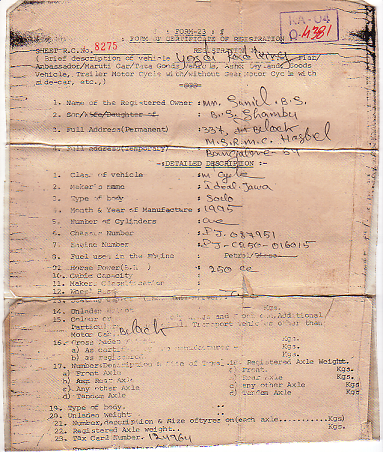 : FORM-23 :
: FORM OF CERTIFICATE OF REGISTRATION
KA-04
Q-4381
SHEET R.C.No. 8275 REGISTRATION
( Brief description of vehicle
Ambassador/Maruti Car/Tata Goods Ashok Leyland Goods
Vehicle, Trailer Motor Cycle with/without Gear Motor Cycle with
side-car, etc.,)
1. Name of the Registered Owner : Mr. Sunil. B.S.
2. Son/Wife/Daughter of : B.S. Shamby
3. Full Address(Permanent) : 337, Block
M.S.R.M.C. Hostel
4. Full Address(Temporary) Bangalore 54
:-DETAILED DESCRIPTION :-
1. Class of vehicle : M Cycle
2. Maker's name : ideal Jawa
3. Type of body : Solo
4. Month & Year of Manufacture : 1995
5. Number of Cylinders : One
6. Chassis Number : PJ. 087951
7. Engine Number : PJ-C250-016015
8. Fuel used in the Engine : Petrol/
9. Horse Power( ) : 250 cc
10. Cubic Capacity
11. Makers Classification
12. Wheel Base
14. Unladen Kgs.
15. Colour Additional
Particul Transport vehicles other than
Motor Ca Black
16. Gross Kgs.
a) As certi Kgs.
b) as registered Kgs.
17. Number; Description & size of Registered Axle Weight.
a) Front Axle a) Front. Kgs.
b) Rear Axle b) Rear Axle Kgs.
c) Any other Axle c) any other Axle Kgs
d) Tandem Axle d) Tandem Axle Kgs
19. Type of body.
20. Unladen weight
21. Number, description & Size of tyres on(each axle........Kgs)
22. Registered Axle weight.. Kgs.
23. Tax Card Number. 124964